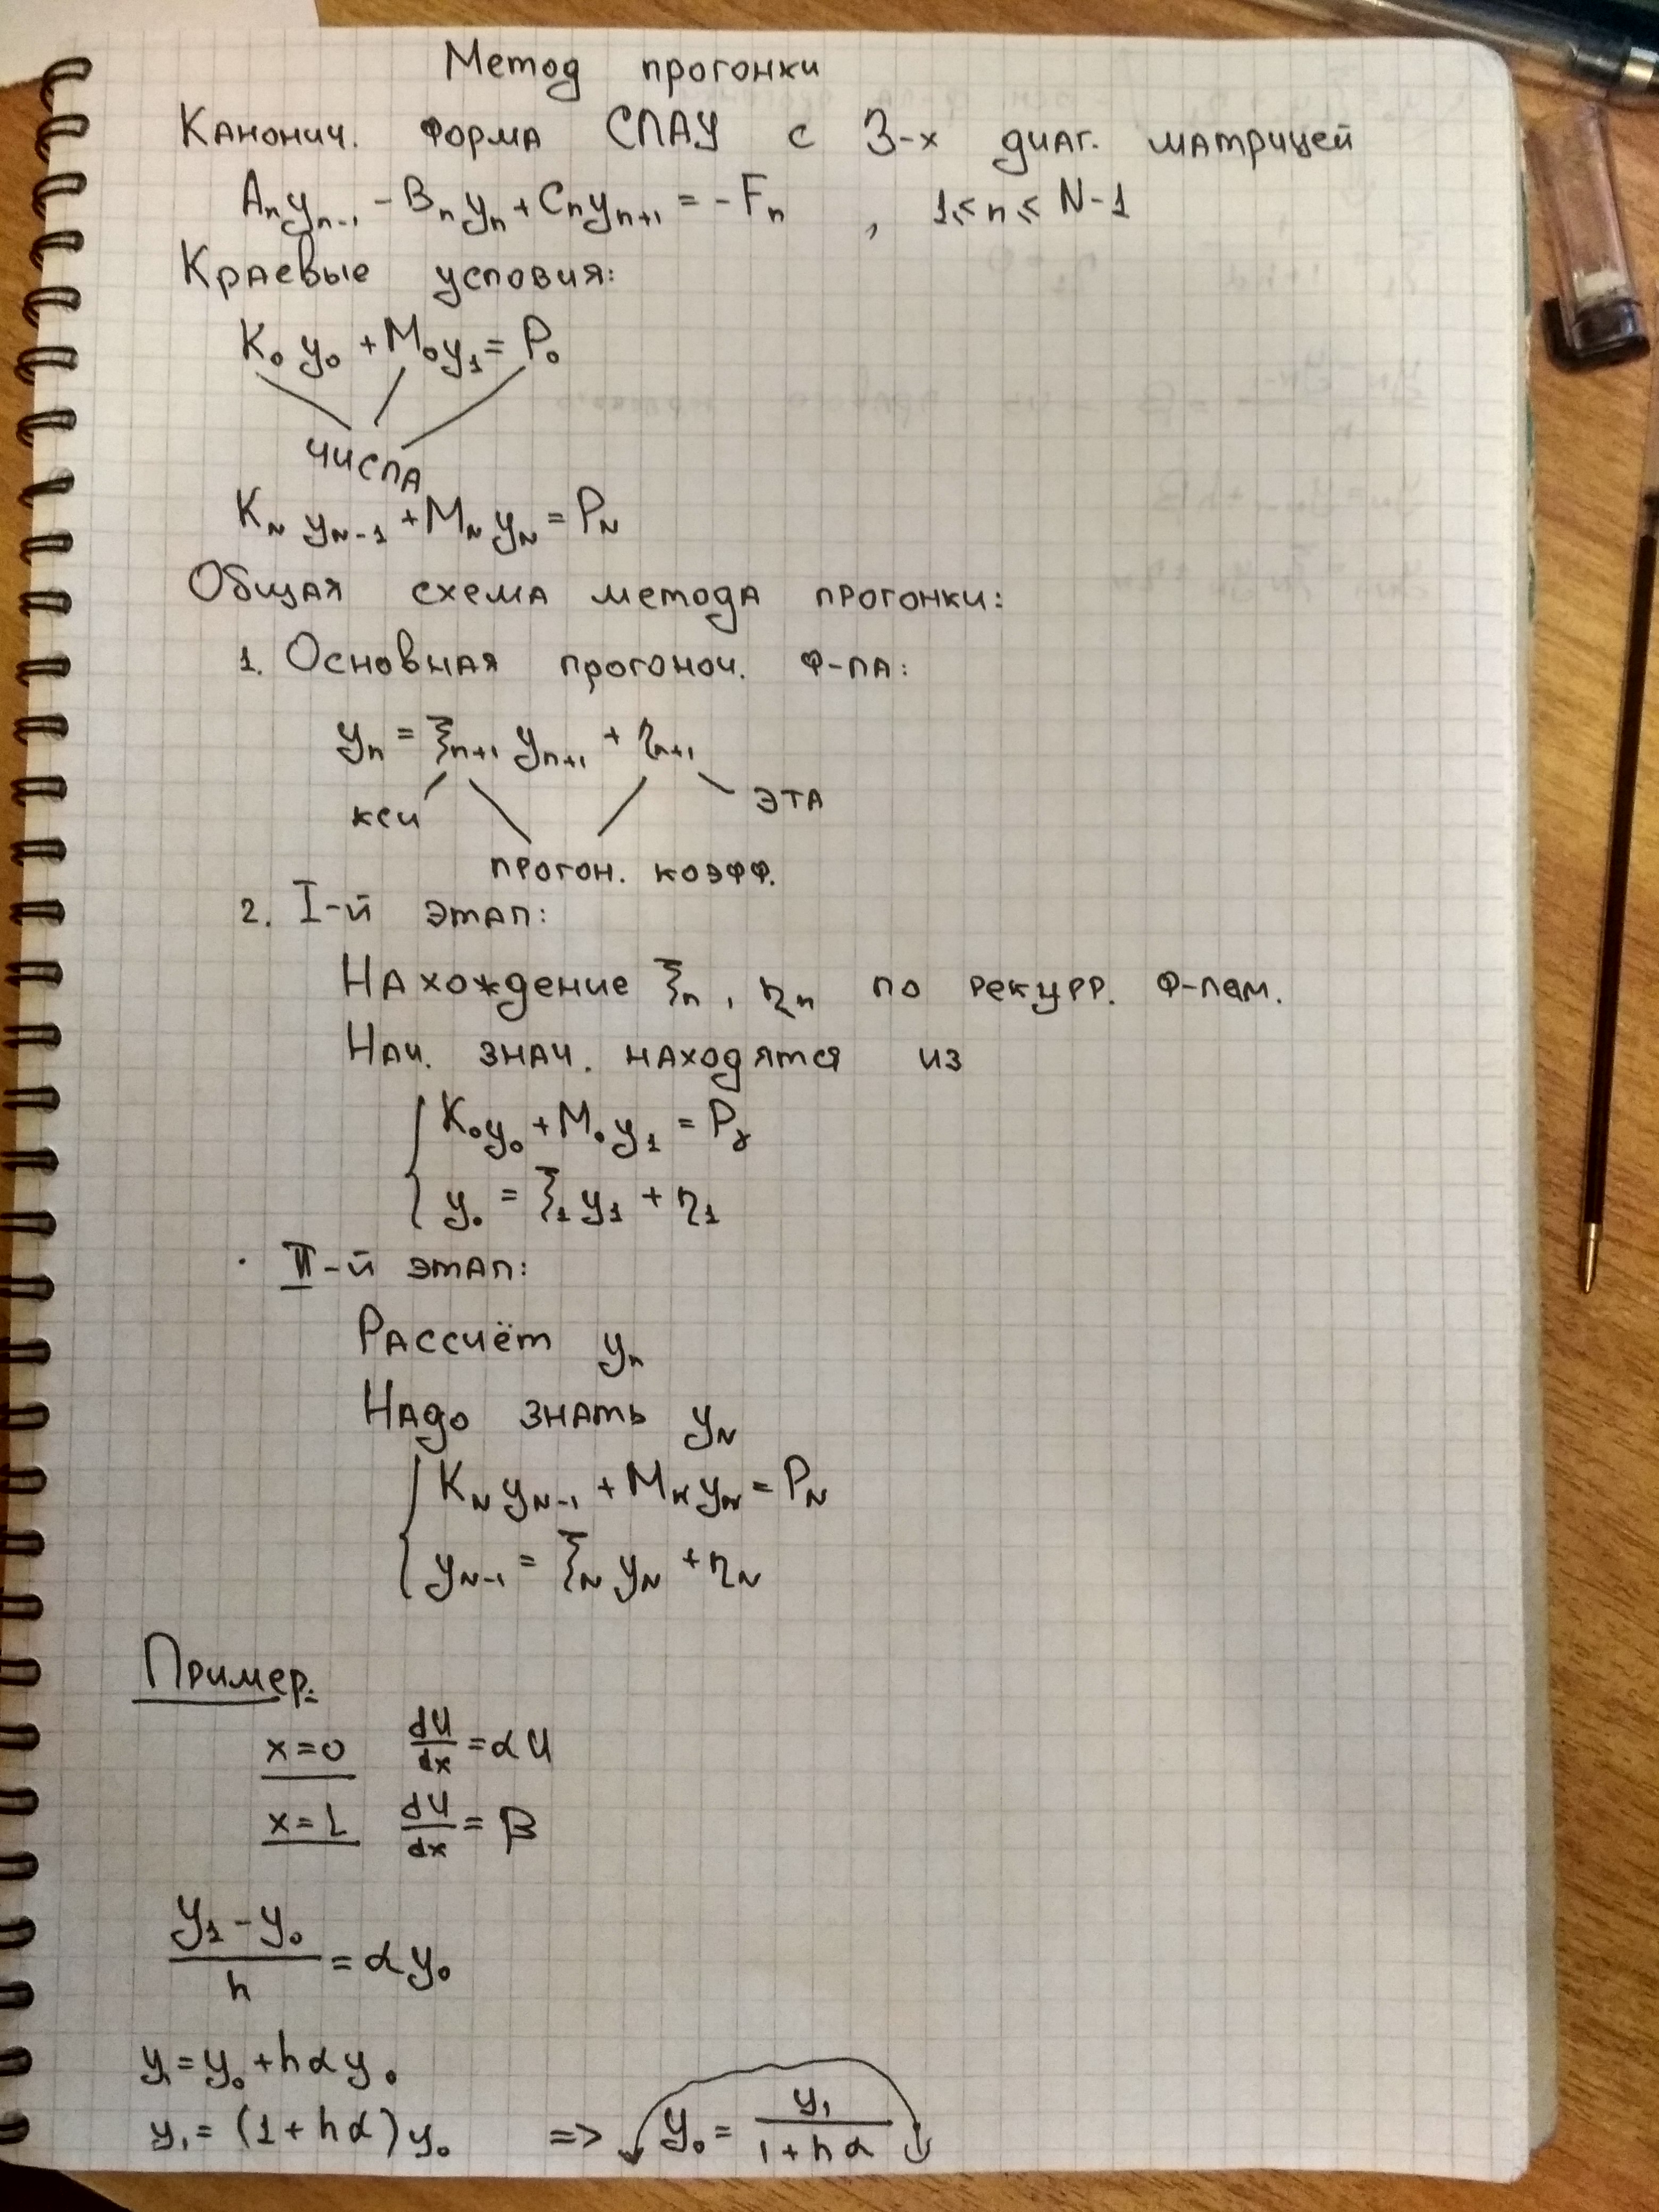 Метод прогонки
Канонич. форма СЛАУ с 3-х диаг. матрицей
Aₙyₙ₋₁ - Bₙyₙ + Cₙyₙ₊₁ = -Fₙ , 1 ≤ n ≤ N-1
Краевые условия:
K₀y₀ + M₀y₁ = P₀
числа
K_N y_{N-1} + M_N y_N = P_N
Общая схема метода прогонки:
1. Основная прогоноч. ф-ла:
yₙ = ξₙ₊₁ yₙ₊₁ + ηₙ₊₁
кси эта
прогон. коэфф.
2. I-й этап:
Нахождение ξₙ, ηₙ по рекурр. ф-лам.
Нач. знач. находятся из
K₀y₀ + M₀y₁ = P₀
y₀ = ξ₁y₁ + η₁
· II-й этап:
Рассчёт yₙ
Надо знать y_N
K_N y_{N-1} + M_N y_N = P_N
y_{N-1} = ξ_N y_N + η_N
Пример:
x=0 dU/dx = αU
x=L dU/dx = β
(y₁ - y₀)/h = αy₀
y₁ = y₀ + hαy₀
y₁ = (1 + hα)y₀ => y₀ = y₁/(1 + hα)